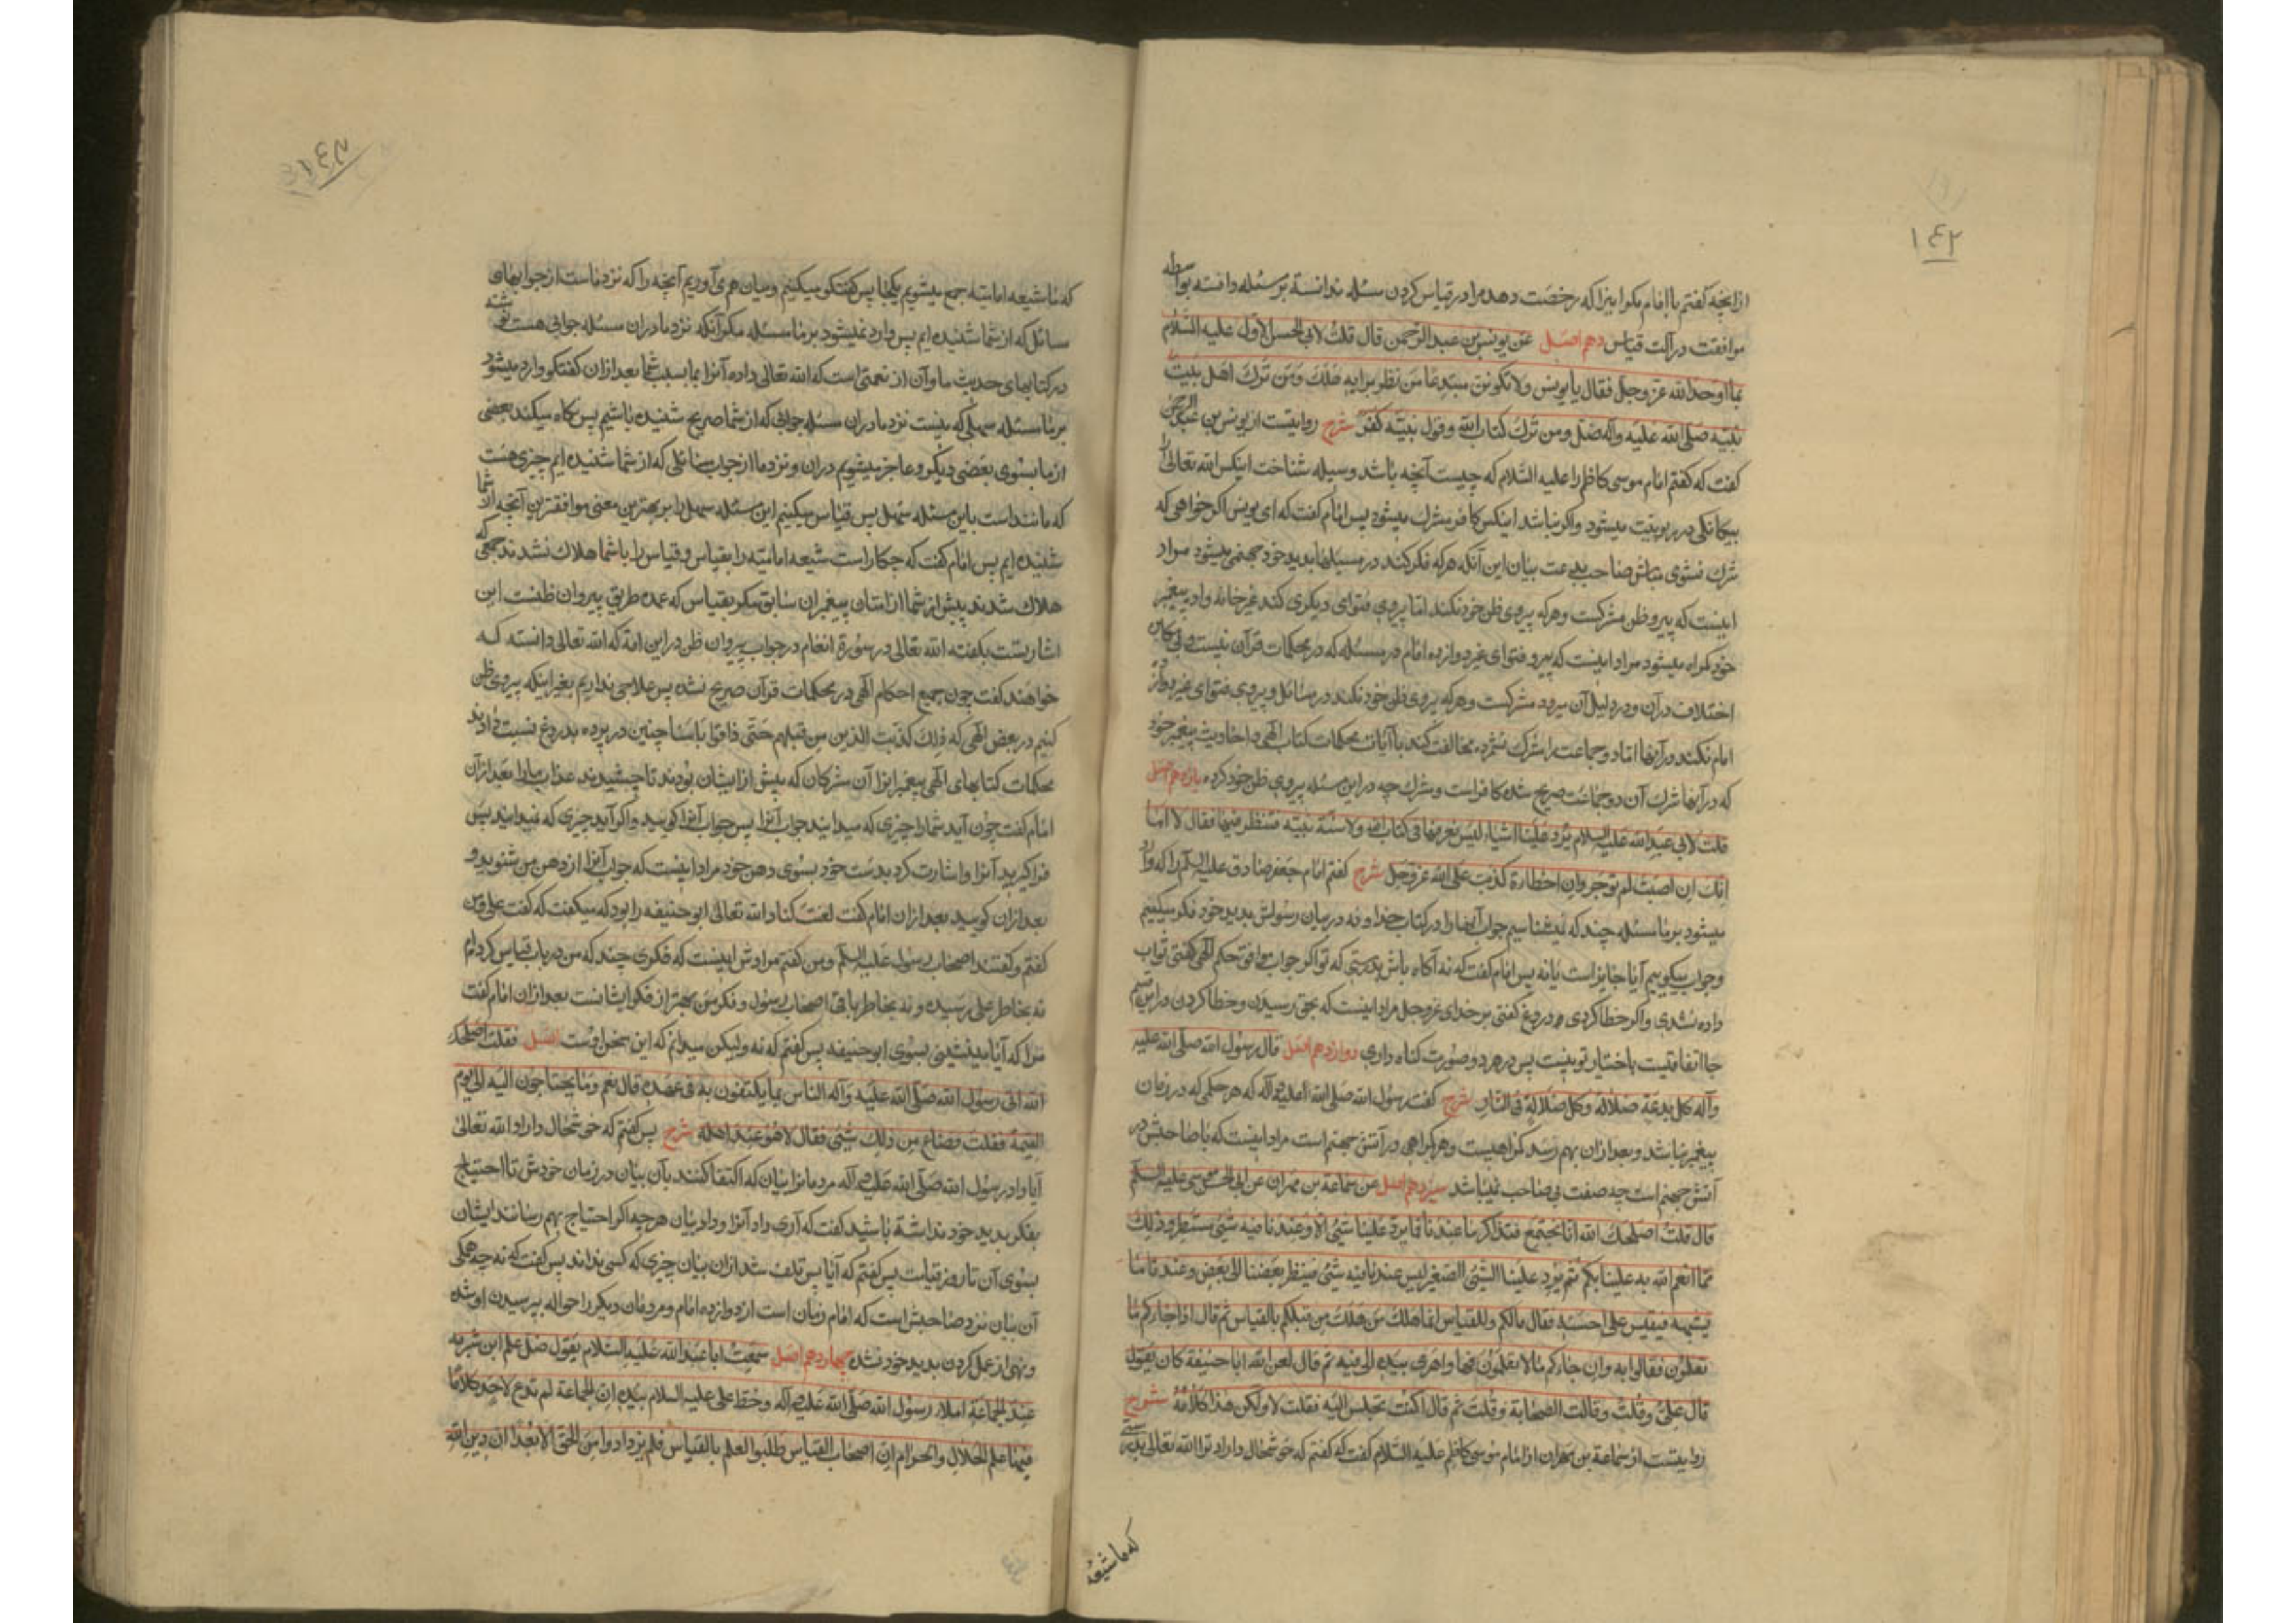 ١٤٢
ازانچه گفتم با امام مکر اینرا که رخصت دهد مرا در قیاس کردن مسئله ندانسته بر مسئله دانسته بواسطه
موافقت در آلت قیاس دهم اصل عن یونس بن عبد الرحمن قال قلت لابی الحسن الاول علیه السلام
بما اوحد الله عز وجل فقال یا یونس ولا تکونن مبتدعا من نظر برایه هلک ومن ترک اهل بیت
نبیه صلی الله علیه وآله ضل ومن ترک کتاب الله وقول نبیه کفر شرح روایتست از یونس بن عبد الرحمن
گفت که گفتم امام موسی کاظم را علیه السلام که چیست آنچه باشد وسیله شناخت اینکس الله تعالی را
بیکانکی در ربوبیت میشود واکر نباشد اینکس کافر مشرک میشود پس امام گفت که ای یونس اکر خواهی که
شرک نشوی مباش صاحب بدعت بیان این آنکه هرکه فکر کند در مسئلها بدید خود جهنمی میشود مراد
اینست که پیرو ظن مشرکست وهرکه پیروی ظن خود نکند اما پیروی فتوای دیکری کند غیر خانواده پیغمبر
خود کمراه میشود مراد اینست که پیرو فتوای غیر دوازده امام در مسئله که در محکمات قرآن نیست و بی مکابره
اختلاف در آن ودر دلیل آن میرود مشرکست وهرکه پیروی ظن خود نکند در مسائل و پیروی فتوای غیر دوازده
امام نکند در آنها اما دو جماعت را مشرک نشمرده مخالفت کند با آیات محکمات کتاب الهی و احادیث پیغمبر خود
که در آنها شرک آن دو جماعت صریح شده کافراست ومشرک چه در این مسئله پیروی ظن خود کرده یازدهم اصل
قلت لابی عبد الله علیه السلام ترد علینا اشیاء لیس نعرفها فی کتاب الله ولا سنة نبیه فننظر فیها فقال لا اما
انک ان اصبت لم توجر وان اخطارة کذبت علی الله عز وجل شرح گفتم امام جعفر صادق علیه السلم را که وارد
میشود بر ما مسئله چند که نمیشناسیم جواب آنها را در کتاب خدا و نه در بیان رسولش بدید خود فکر میکنیم
وجواب میگوییم آیا جایز است یا نه پس امام گفت که نه آکاه باش بدرستی که تو اکر جواب موافق حکم الهی گفتی ثواب
داده نشدی واکر خطا کردی دروغ گفتی بر خدای عز وجل مراد اینست که بحق رسیدن وخطا کردن در این قسم
جا اتفاقیست باختیار تو نیست پس در هر دو صورت کناه داری دوازدهم اصل قال رسول الله صلی الله علیه
وآله کل بدعة ضلالة وکل ضلالة فی النار شرح گفت رسول الله صلی الله علیه وآله که هر حکمی که در زمان
پیغمبر نباشد وبعد ازان بهم رسد کمراهیست وهر کمراهی در آتش جهنم است مراد اینست که با صاحبش در
آتش جهنم است چه صفت بی صاحب نمیباشد سیزدهم اصل عن سماعة بن مهران عن ابی الحسن موسی علیه السلم
قال قلت اصلحک الله انا نجتمع فنتذاکر ما عندنا فما یرد علینا شئ الا وعندنا فیه شئ مسطر وذلک
مما انعم الله به علینا بکم ثم یرد علینا الشئ الصغیر لیس عندنا فیه شئ فینظر بعضنا الی بعض وعندنا ما
یشبهه فیقیس علی احسنه فقال مالکم وللقیاس انما هلک من هلک من قبلکم بالقیاس ثم قال اذا جاءکم ما
تعلمون فقولوا به وان جاءکم ما لا تعلمون فها واهوی بیده الی فیه ثم قال لعن الله ابا حنیفة کان یقول
قال علی وقلت وقالت الصحابة وقلت ثم قال اکنت تجلس الیه فقلت لا ولکن هذا کلامه شرح
روایتست از سماعة بن مهران از امام موسی کاظم علیه السلام گفت که گفتم که خوشحال داراد ترا الله تعالی بدرستی
که ما شیعه
١٤٣
که ما شیعه امامیه جمع میشویم یکجا پس گفتگو میکنیم ومیان هم می آوریم آنچه را که نزد ماست از جوابهای
مسائل که از شما شنیده ایم پس وارد نمیشود بر ما مسئله مکر آنکه نزد ما در ان مسئله جوابی هست نوشته
در کتابهای حدیث ما وآن از نعمتی است که الله تعالی داده آنرا بما بسبب شما بعد ازان گفتگو وارد میشود
بر ما مسئله سهلی که نیست نزد ما در ان مسئله جوابی که از شما صریح شنیده باشیم پس نکاه میکند بعضی
از ما بسوی بعضی دیگر وعاجز میشویم دران ونزد ما از جواب مسائلی که از شما شنیده ایم چیزی هست
که مانند است باین مسئله سهل پس قیاس میکنیم این مسئله سهل را بر بهترین معنی موافقترین آنچه از شما
شنیده ایم پس امام گفت که چکار است شیعه امامیه را بقیاس وقیاس را باشما هلاک نشدند جمعی که
هلاک شدند پیش از شما از امتان پیغمبران سابق مکر بقیاس که عمده طریق پیروان ظنست این
اشارتست بگفته الله تعالی در سورة انعام در جواب پیروان ظن در این امة که الله تعالی دانسته که
خواهند گفت چون جمیع احکام الهی در محکمات قرآن صریح نشده پس علاجی نداریم بغیر اینکه پیروی ظن
کنیم در بعض الهی که ذلک کذب الذین من قبلهم حتی ذاقوا باسنا چنین در پرده بدروغ نسبت دادند
محکمات کتابهای الهی پیغمبرانرا آن مشرکان که پیش از ایشان بودند تا چشیدند عذاب مارا بعد ازان
امام گفت چون آید شمارا چیزی که میدانید جواب آنرا پس جواب آنرا گویید واکر آید چیزی که نمیدانید پس
فراگیرید آنرا واشارت کرد بدست خود بسوی دهن خود مراد اینست که جواب آنرا از دهن من شنوید و
بعد ازان گویید بعد ازان امام گفت لعنت کناد الله تعالی ابو حنیفه را بود که میگفت که گفت علی ومن
گفتم وگفتند اصحاب رسول علیه السلم ومن گفتم مرادش اینست که فکری چند که من در باب قیاس کرده ام
نه بخاطر علی رسیده و نه بخاطر باقی اصحاب رسول وفکر من بهتر از فکر ایشانست بعد ازان امام گفت
مرا که آیا مینشینی بسوی ابو حنیفه پس گفتم که نه ولیکن میدانم که این سخن اوست اصل فقلت اصلحک
الله اتی رسول الله صلی الله علیه وآله الناس بما یکتفون به فی عهده قال نعم وما یحتاجون الیه الی یوم
القیمة فقلت فضاع من ذلک شئ فقال لا هو عند اهله شرح پس گفتم که خوشحال داراد الله تعالی
آیا داد رسول الله صلی الله علیه وآله مردمانرا بیان که اکتفا کنند بآن بیان در زمان خودش تا احتیاج
بفکر بدید خود نداشته باشید گفت که آری داد آنرا وداد بیان هرچه اکر احتیاج بهم رسانند ایشان
بسوی آن تا روز قیامت پس گفتم که آیا پس تلف شد ازان بیان چیزی که کسی نداند پس گفت که نه چه همکی
آن بیان نزد صاحبش است که امام زمان است از دوازده امام ومردمان دیگر را حواله بپرسیدن او شده
ونهی از عمل کردن بدید خود شده چهاردهم اصل سمعت ابا عبد الله علیه السلام یقول ضل علم ابن شبرمه
عند الجامعة املاء رسول الله صلی الله علیه وآله وخط علی علیه السلام بیده ان الجامعة لم تدع لاحد کلاما
فیها علم الحلال والحرام ان اصحاب القیاس طلبوا العلم بالقیاس فلم یزدادوا من الحق الا بعدا ان دین الله